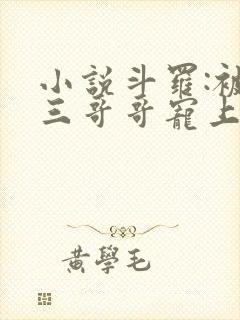 小說斗羅:被
三哥哥寵上
黃學毛